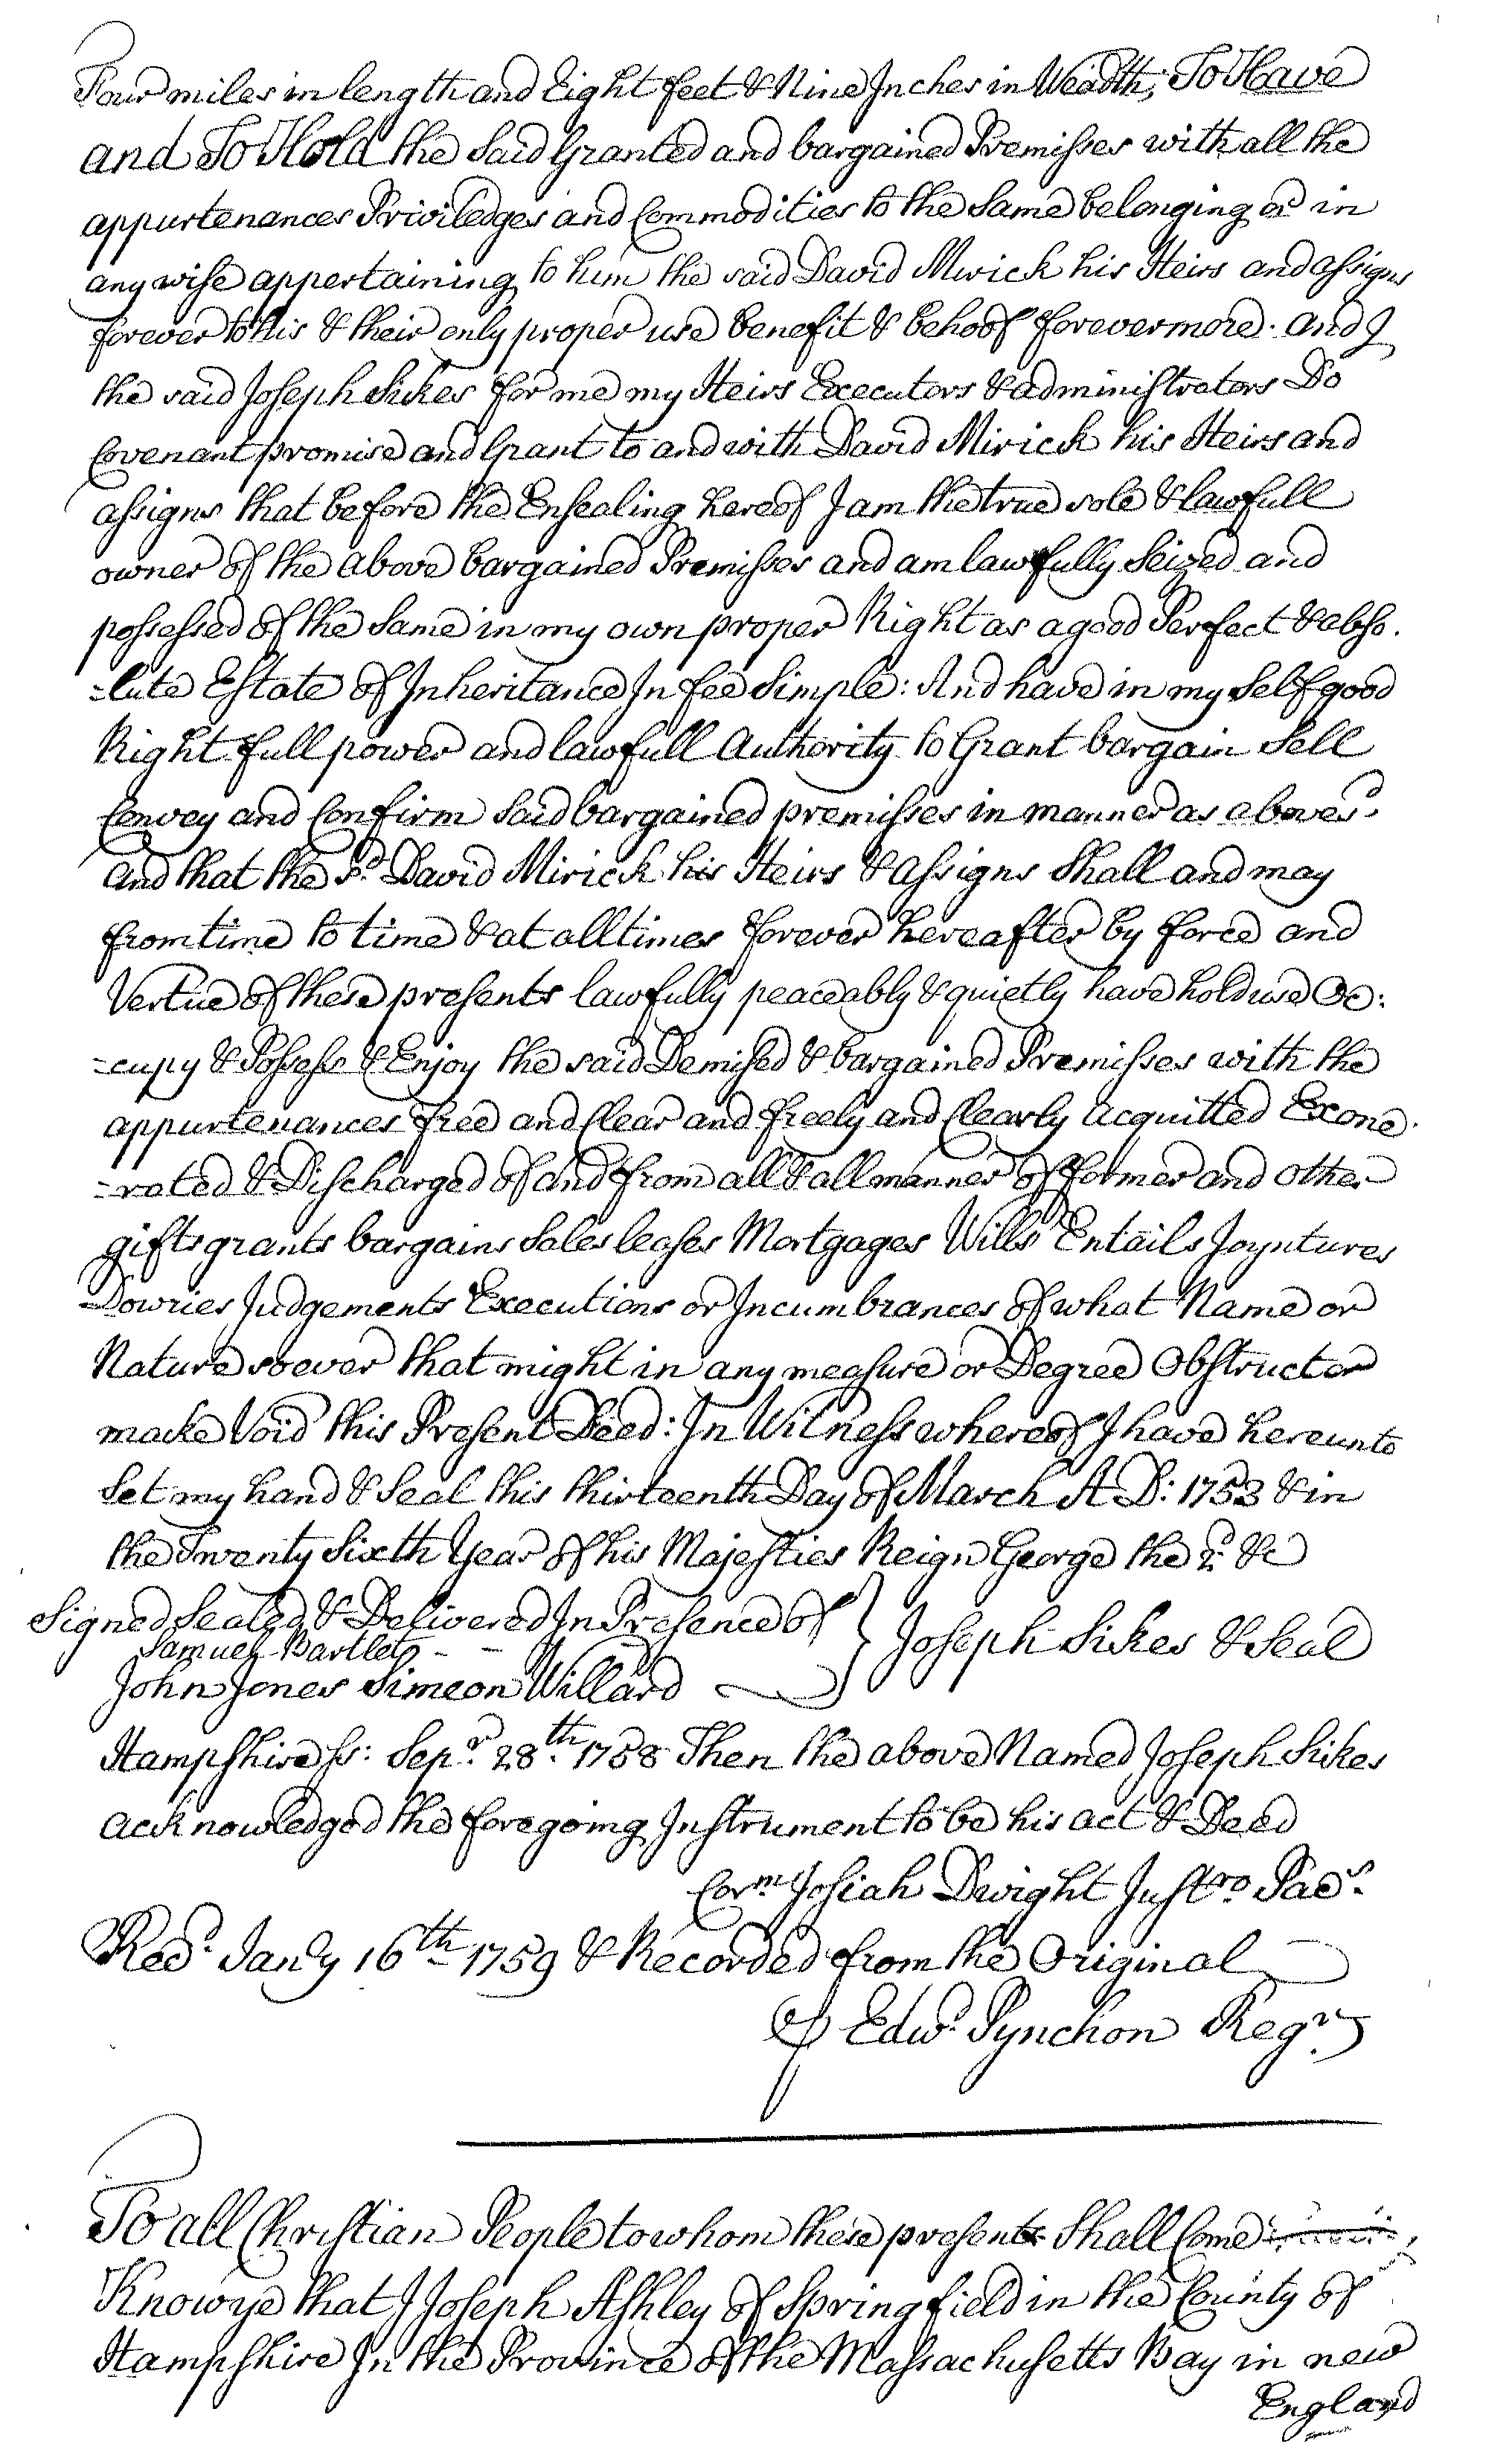 Four miles in length and Eight feet & Nine Inches in Weadth, To Have
and To Hold the Said Granted and bargained Premisses with all the
appurtenances Priviledges and Commodities to the Same belonging or in
any wise appertaining to him the said David Mirick his Heirs and assigns
forever to his & their only proper use benefit & behoof forevermore. And I
the said Joseph Sikes for me my Heirs Executors & administrators Do
Covenant promise and Grant to and with David Mirick his Heirs and
assigns that before the Ensealing hereof I am the true sole & lawfull
owner of the above bargained Premisses and am lawfully Seized and
possessed of the Same in my own proper Right as a good Perfect & abso.
-lute Estate of Inheritance In fee Simple: And have in my Self good
Right full power and lawfull Authority to Grant bargain Sell
Convey and Confirm Said bargained premisses in manner as aboves.d
and that the s.d David Mirick his Heirs & Assigns Shall and may
from time to time & at all times forever hereafter by force and
Vertue of these presents lawfully peaceably & quietly have hold use Oc:
-cupy & Possess & Enjoy the said Demised & bargained Premisses with the
appurtenances free and Clear and freely and Clearly acquitted Exone.
-rated & Discharged of and from all & all manner of former and other
gifts grants bargains Sales leases Mortgages Wills Entails Joyntures
Dowries Judgements Executions or Incumbrances of what Name or
Nature soever that might in any measure or Degree Obstruct or
make Void this Present Deed: In Witness whereof I have hereunto
Set my hand & Seal this thirteenth Day of March A D: 1753 & in
the Twenty Sixth Year of his Majesties Reign George the 2.d &c
Signed Sealed & Delivered In Presence of } Joseph Sikes & Seal
Samuel Bartlett - -
John Jones Simeon Willard
Hampshire ss: Sep.r 28.th 1758 Then the above Named Joseph Sikes
acknowledged the foregoing Instrument to be his act & Deed
Cor.m Josiah Dwight Just.ro Pac.s
Rec.d Jan.y 16.th 1759 & Recorded from the Original
℘ Edw.d Pynchon Reg.r
To all Christian People to whom these presents Shall Come
Know ye that I Joseph Ashley of Springfield in the County of
Hampshire In the Province of the Massachusetts Bay in new
England